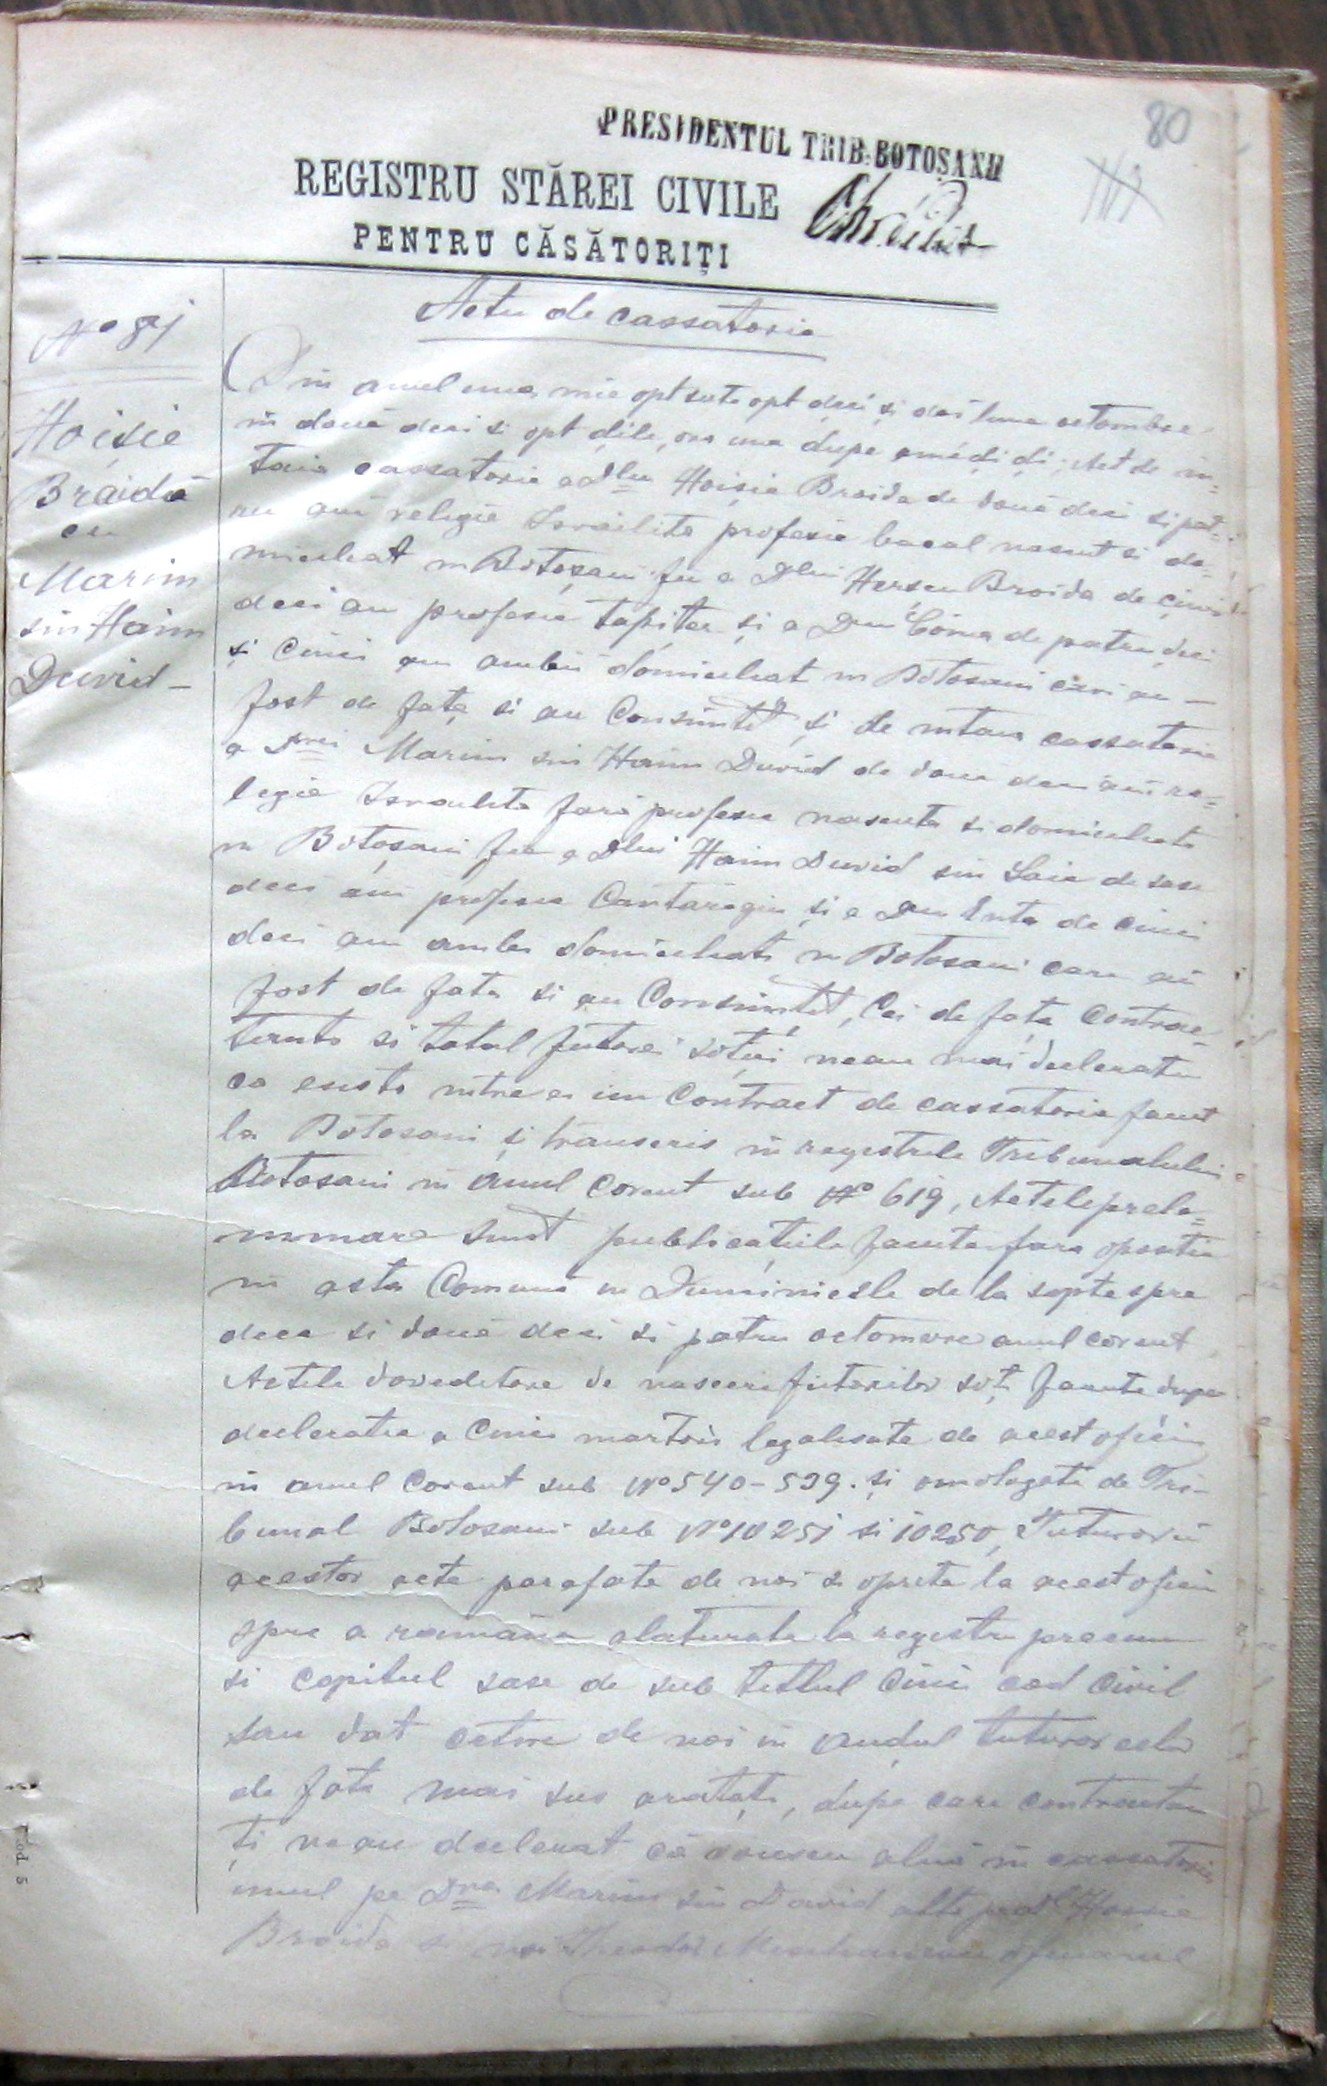 80
PRESIDENTUL TRIB. BOTOȘANII
REGISTRU STĂREI CIVILE
PENTRU CĂSĂTORIȚI
Actu de cassatorie
Nº 81
Hoisie
Braida
cu
Marim
sin Haim
Duvid –
Din anul una mie opt sute opt deci și doi luna octombre
in doué deci si opt dile, ora una dupe amédi di; Act de in=
taia cassatorie a dlui Hoișie Broida de doué deci si pat=
ru ani religie Israelita profesie bacal nascut si do=
miciliat in Botoșani fiu a Dlui Herscu Broida de cinci
deci an profesie tapiter și a Dnei de patru deci
și cinci an ambii domiciliat in Botosani cari au –
fost de fața si au Consimtit și de intaia cassatorie
a Marim sin Haim Duvid de doue deci ani re=
legie Israelita fara profesie nascuta si domiciliata
in Botoșani fiica a Dlui Haim Duvid sin Saia de sase
deci ani profesie Cantaragiu și a Dnei Enta de cinci
deci ani ambii domiciliati in Botosani care au
fost de fata si au Consimtit, Cei de fața contrac=
tanti si tatal futorei soții neau mai declaratu
ca esista intre ei un Contract de cassatorie facut
la Botosani și transcris in registrele Tribunalului
Botosani in anul corent sub Nº 619, Actele prela=
minare sunt publicatiile facute fara opositie
in asta Comuna in Duminicile de la septe spre
dece si doué deci si patru octombre anul corent
Actele doveditore de nascerea fiitorilor soț facute dupe
declaratia a cinci martori legalisate de acest oficiu
in anul corent sub Nº 540 – 539. și omologate de Tri-
bunal Botosani sub Nº 10251 si 10250, Tuturor
acestor acte parafate de noi si oprite la acest oficiu
spre a ramânea alaturate la registru precum
si capitul sase de sub titlul cinci cod civil
sau dat cetire de noi in audul tuturor celor
de fata mai sus aratați, dupe care contractan
ți neau declarat că voescu alua in cassatorie
unul pe Dna Marim sin David alta pe dl Hoisie
Broida si noi Theodor